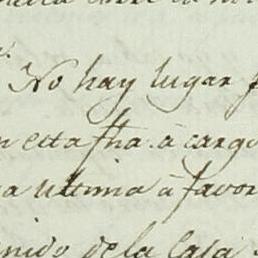 No hay lugar
n esta fha. à cargo
a ultima à favor
nido de la Casa